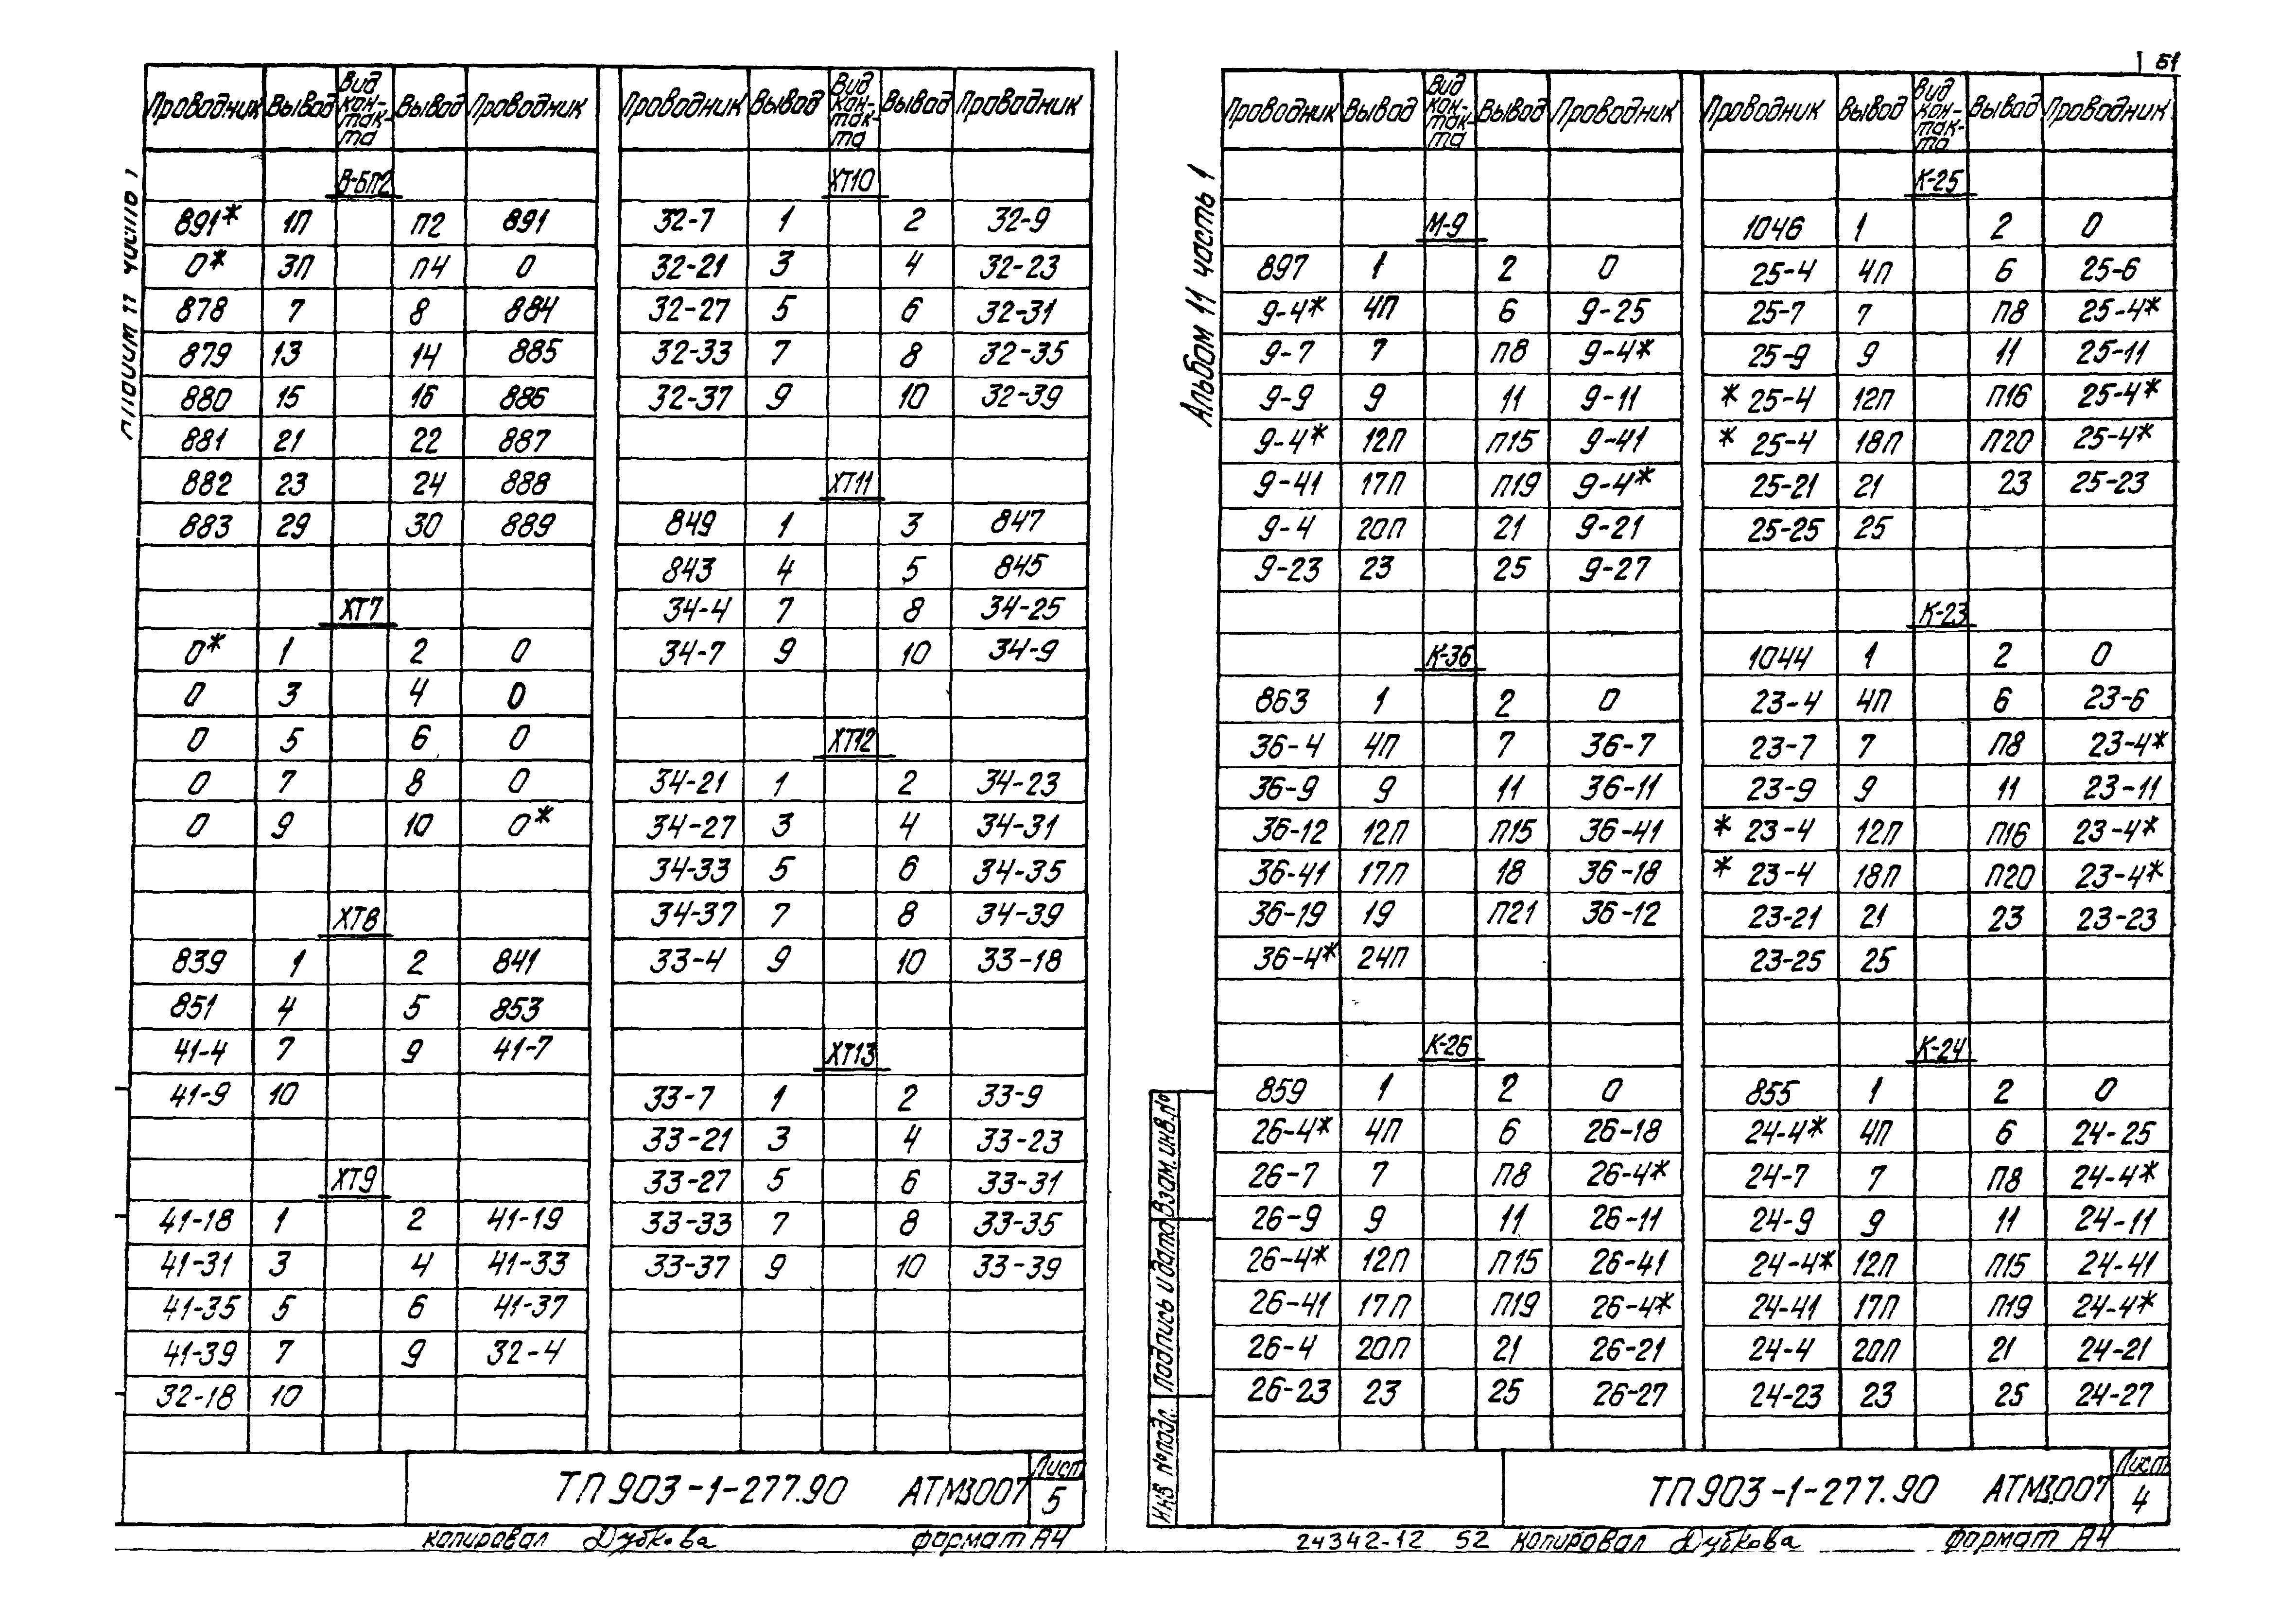 51
Альбом 11 часть 1
Проводник Вывод Вид контакта Вывод Проводник
В-БП2
891* 1П П2 891
0* 3П П4 0
878 7 8 884
879 13 14 885
880 15 16 886
881 21 22 887
882 23 24 888
883 29 30 889
ХТ7
0* 1 2 0
0 3 4 0
0 5 6 0
0 7 8 0
0 9 10 0*
ХТ8
839 1 2 841
851 4 5 853
41-4 7 9 41-7
41-9 10
ХТ9
41-18 1 2 41-19
41-31 3 4 41-33
41-35 5 6 41-37
41-39 7 9 32-4
32-18 10
Проводник Вывод Вид контакта Вывод Проводник
ХТ10
32-7 1 2 32-9
32-21 3 4 32-23
32-27 5 6 32-31
32-33 7 8 32-35
32-37 9 10 32-39
ХТ11
849 1 3 847
843 4 5 845
34-4 7 8 34-25
34-7 9 10 34-9
ХТ12
34-21 1 2 34-23
34-27 3 4 34-31
34-33 5 6 34-35
34-37 7 8 34-39
33-4 9 10 33-18
ХТ13
33-7 1 2 33-9
33-21 3 4 33-23
33-27 5 6 33-31
33-33 7 8 33-35
33-37 9 10 33-39
ТП 903-1-277.90 АТМ3.007 Лист 5
Копировал Дубкова формат А4
Альбом 11 часть 1
Проводник Вывод Вид контакта Вывод Проводник
М-9
897 1 2 0
9-4* 4П 6 9-25
9-7 7 П8 9-4*
9-9 9 11 9-11
9-4* 12П П15 9-41
9-41 17П П19 9-4*
9-4 20П 21 9-21
9-23 23 25 9-27
К-36
863 1 2 0
36-4 4П 7 36-7
36-9 9 11 36-11
36-12 12П П15 36-41
36-41 17П 18 36-18
36-19 19 П21 36-12
36-4* 24П
К-26
859 1 2 0
26-4* 4П 6 26-18
26-7 7 П8 26-4*
26-9 9 11 26-11
26-4* 12П П15 26-41
26-41 17П П19 26-4*
26-4 20П 21 26-21
26-23 23 25 26-27
Проводник Вывод Вид контакта Вывод Проводник
К-25
1046 1 2 0
25-4 4П 6 25-6
25-7 7 П8 25-4*
25-9 9 11 25-11
* 25-4 12П П16 25-4*
* 25-4 18П П20 25-4*
25-21 21 23 25-23
25-25 25
К-23
1044 1 2 0
23-4 4П 6 23-6
23-7 7 П8 23-4*
23-9 9 11 23-11
* 23-4 12П П16 23-4*
* 23-4 18П П20 23-4*
23-21 21 23 23-23
23-25 25
К-24
855 1 2 0
24-4* 4П 6 24-25
24-7 7 П8 24-4*
24-9 9 11 24-11
24-4* 12П П15 24-41
24-41 17П П19 24-4*
24-4 20П 21 24-21
24-23 23 25 24-27
Инв №подл. Подпись и дата Взам.инв.№
ТП 903-1-277.90 АТМ3.007 Лист 4
24342-12 52 Копировал Дубкова формат А4